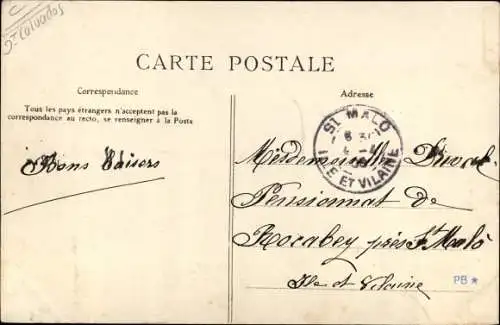 Dt Calvados
CARTE POSTALE
Correspondance
Tous les pays étrangers n'acceptent pas la
correspondance au recto, se renseigner à la Poste
Bons baisers
Adresse
ST MALO
ILLE ET VILAINE
Mesdemoiselles
Pensionnat de
Rocabey près St Malo
Ile et Vilaine
PB *